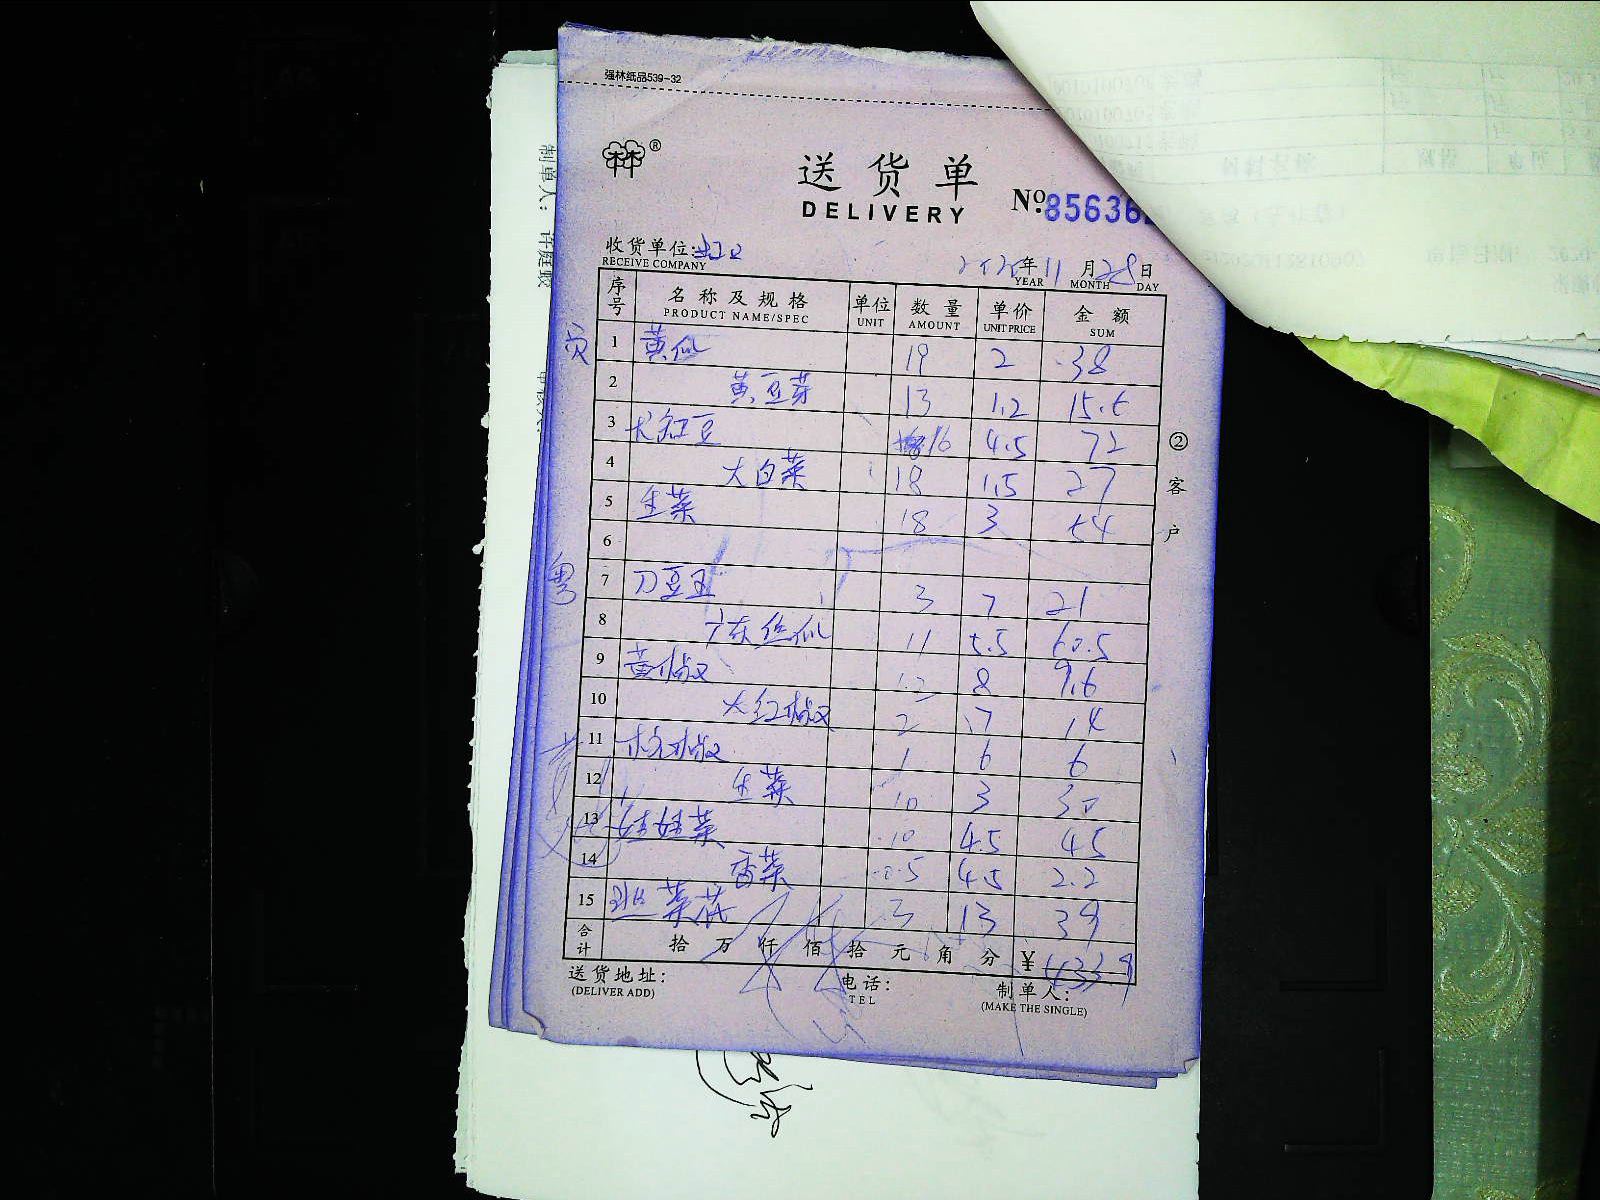 强林纸品539-32
®
送货单
DELIVERY
No. 85636
收货单位:
RECEIVE COMPANY
年 11 月 28 日
YEAR MONTH DAY
序号 名称及规格 单位 数量 单价 金额
PRODUCT NAME/SPEC UNIT AMOUNT UNIT PRICE SUM
1 黄瓜 19 2 38
2 黄豆芽 13 1.2 15.6
3 长豇豆 16 4.5 72
4 大白菜 18 1.5 27
5 生菜 18 3 54
6
7 刀豆 3 7 21
8 广东丝瓜 11 5.5 60.5
9 黄椒 1.2 8 9.6
10 大红椒 2 7 14
11 椒 1 6 6
12 生菜 10 3 30
13 娃娃菜 10 4.5 45
14 香菜 0.5 4.5 2.2
15 菜花 3 13 39
合计 拾 万 仟 佰 拾 元 角 分 ¥ 433.9
送货地址: 电话: 制单人:
(DELIVER ADD) TEL (MAKE THE SINGLE)
②客户
制单人: 许庭